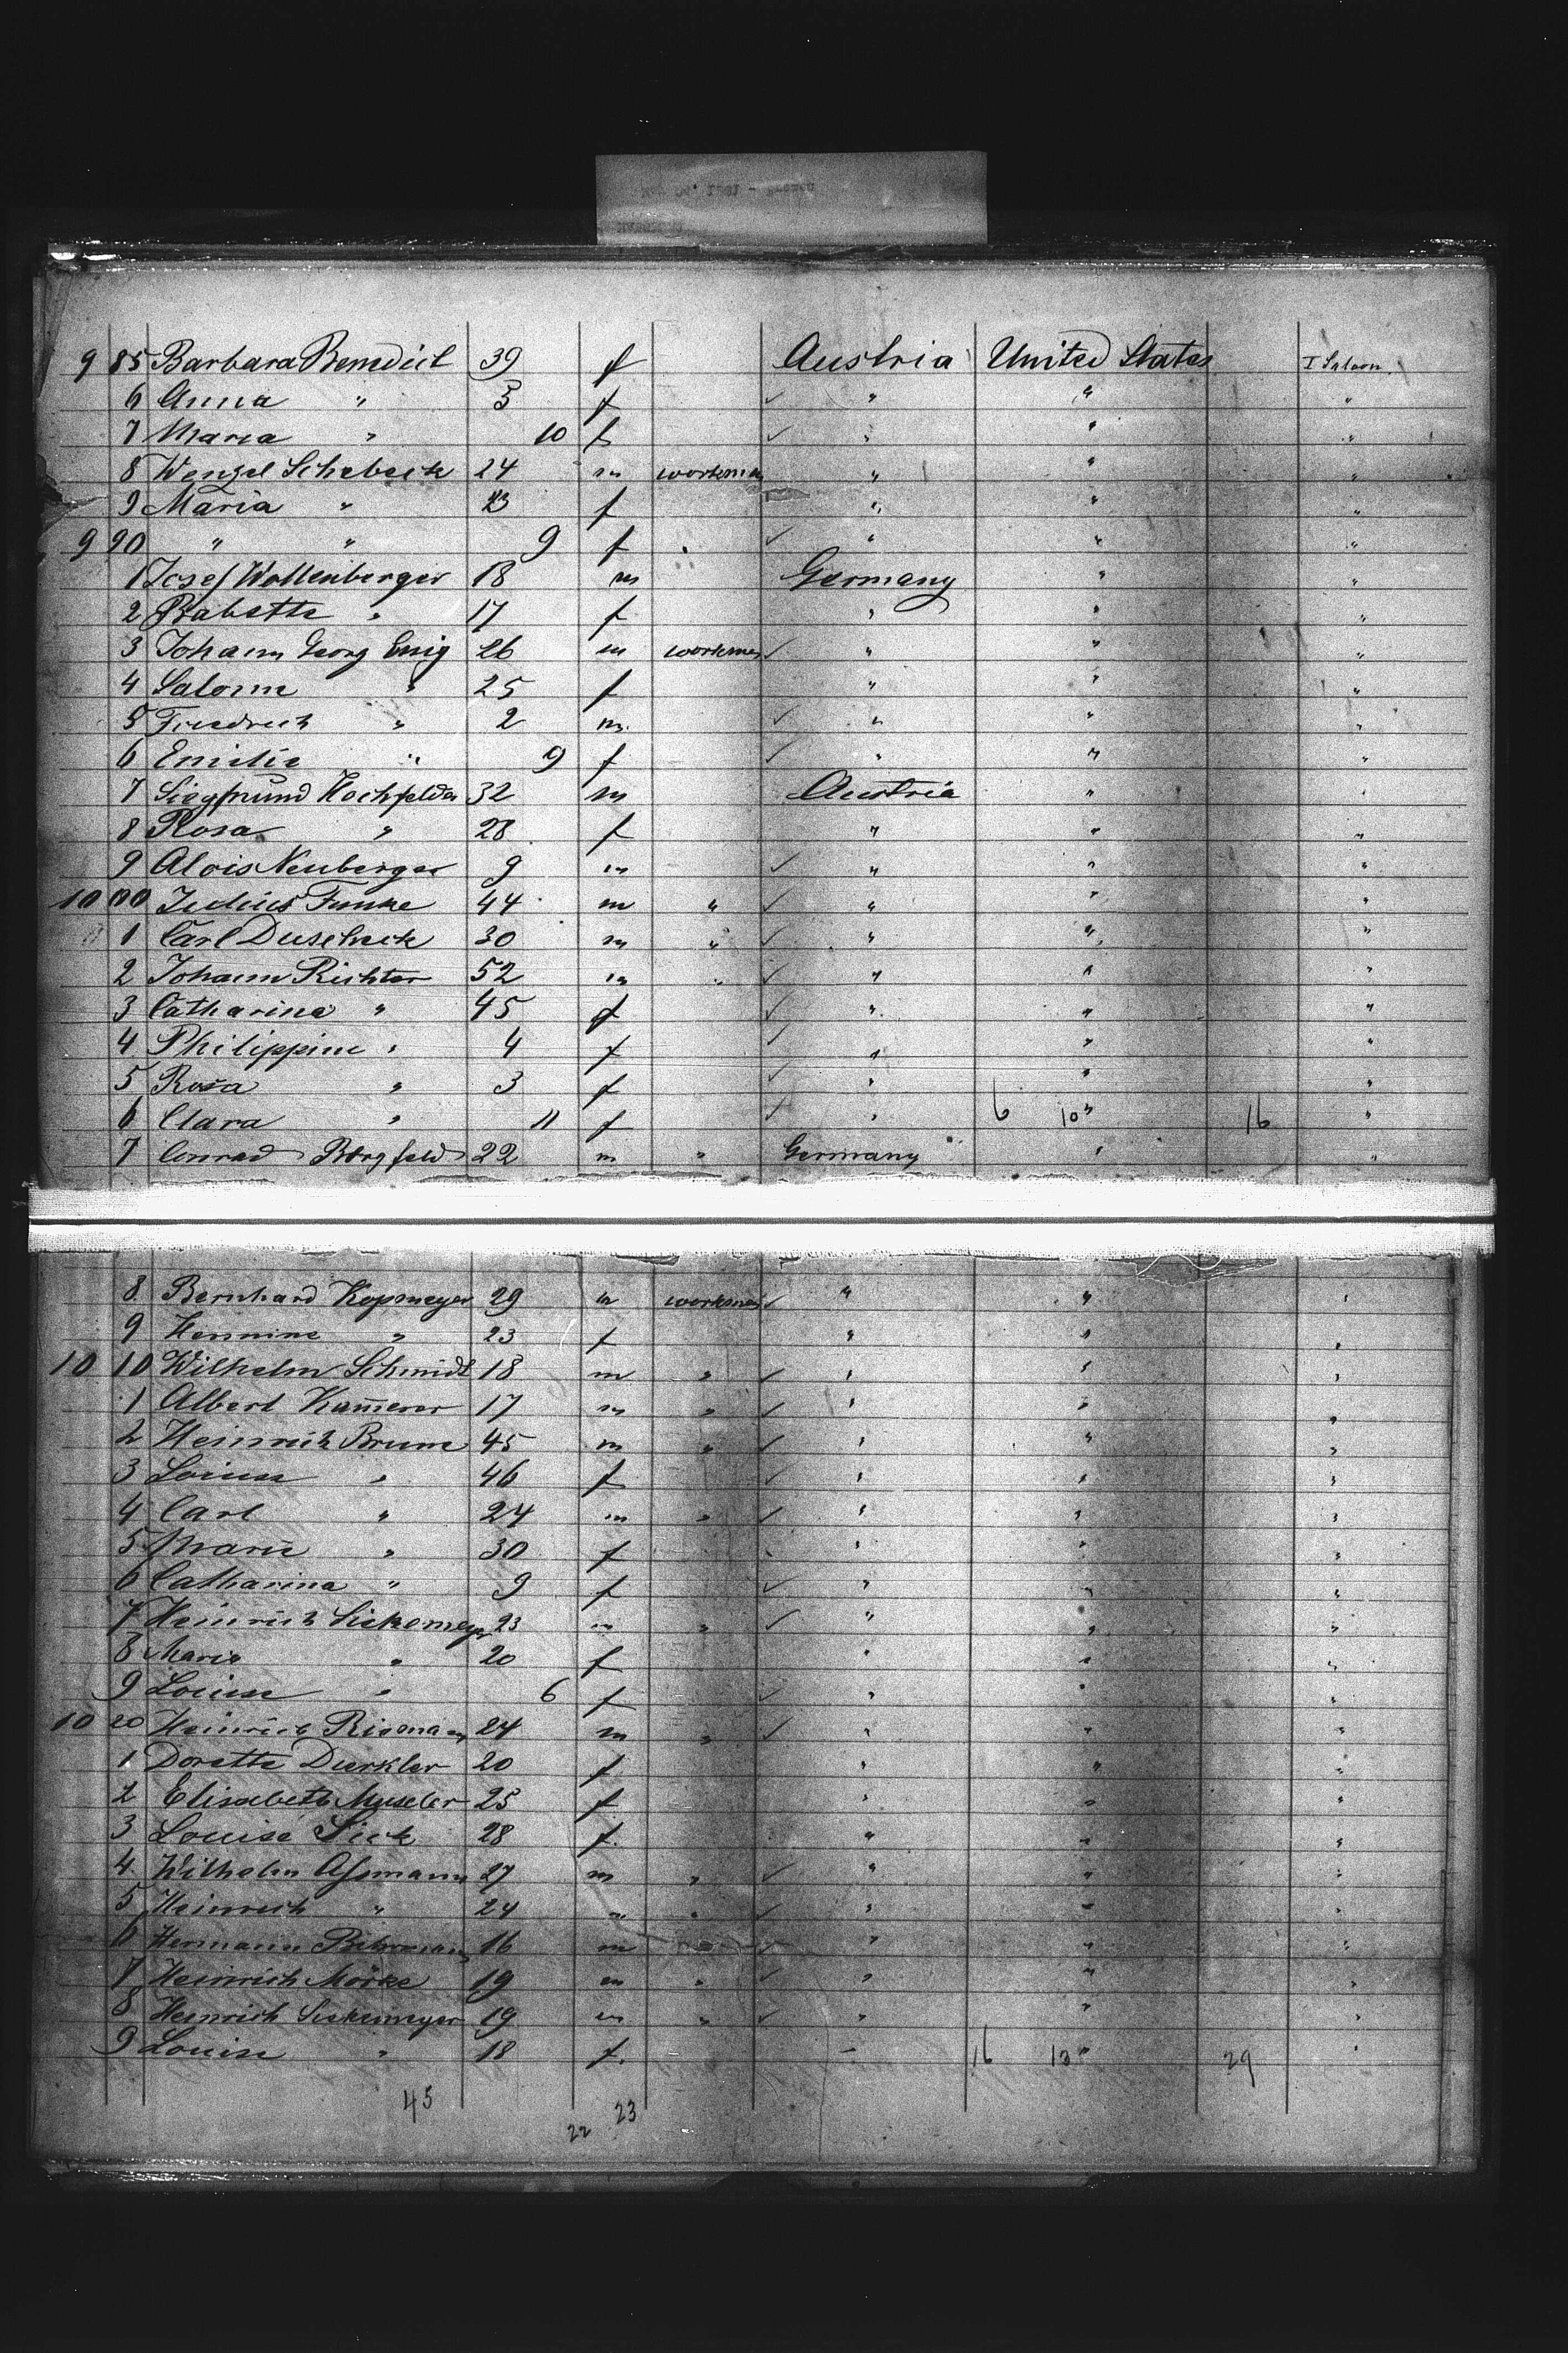 9 85 Barbara Benedict 39 f Austria United States I Saloon
6 Anna " 3 f ✓ " " "
7 Maria " 10 f ✓ " " "
8 Wenzel Schebeck 24 m workmen " " "
9 Maria " 23 f " " "
9 90 " " 9 f ✓ " " "
1 Josef Wollenberger 18 m Germany " "
2 Babette " 17 f " " "
3 Johann Georg Emig 26 m workmen ✓ " " "
4 Salome " 25 f " " "
5 Friedrich " 2 m ✓ " " "
6 Emilie " 9 f ✓ " " "
7 Siegmund Hochfelder 32 m Austria " "
8 Rosa " 28 f " " "
9 Alois Neuberger 9 m ✓ " " "
10 00 Julius Funke 44 m " ✓ " " "
1 Carl Duscheck 30 m " ✓ " " "
2 Johann Richter 52 m " ✓ " " "
3 Catharina " 45 f ✓ " " "
4 Philippine " 4 f ✓ " " "
5 Rosa " 3 f ✓ " " "
6 Clara " 11 f ✓ " 6 10 " 16 "
7 Conrad Borgfeld 22 m " Germany " "
8 Bernhard Kopmeyer 29 m workmen ✓ " " "
9 Hermine " 23 f " " "
10 10 Wilhelm Schmidt 18 m " ✓ " " "
1 Albert Kam̄erer 17 m " ✓ " " "
2 Heinrich Brune 45 m " ✓ " " "
3 Louise " 46 f ✓ " " "
4 Carl " 24 m " ✓ " " "
5 Marie " 30 f " " "
6 Catharina " 9 f ✓ " " "
7 Heinrich Siekemeyer 23 m " ✓ " " "
8 Marie " 20 f " " "
9 Louise " 6 f ✓ " " "
10 20 Heinrich Rieman 24 m " ✓ " " "
1 Dorette Duerkler 20 f " " "
2 Elisabeth Museler 25 f " " "
3 Louise Siek 28 f " " "
4 Wilhelm Assmann 27 m " ✓ " " "
5 Heinrich " 24 m " ✓ " " "
6 Hermann 16 m " ✓ " " "
7 Heinrich Mörke 19 m " ✓ " " "
8 Heinrich Siekemeyer 19 m " ✓ " " "
9 Louise " 18 f " 16 13 " 29 "
45
22 23